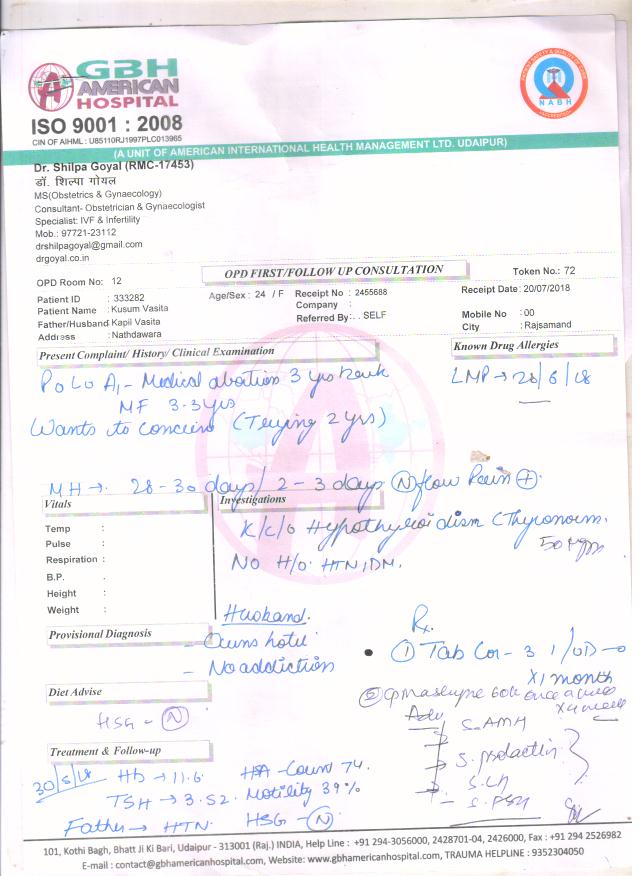 GBH
AMERICAN
HOSPITAL
NABH
ISO 9001 : 2008
CIN OF AIHML : U85110RJ1997PLC013965
(A UNIT OF AMERICAN INTERNATIONAL HEALTH MANAGEMENT LTD. UDAIPUR)
Dr. Shilpa Goyal (RMC-17453)
डॉ. शिल्पा गोयल
MS(Obstetrics & Gynaecology)
Consultant- Obstetrician & Gynaecologist
Specialist: IVF & Infertility
Mob.: 97721-23112
drshilpagoyal@gmail.com
drgoyal.co.in
OPD FIRST/FOLLOW UP CONSULTATION
OPD Room No: 12
Token No.: 72
Patient ID : 333282 Age/Sex : 24 / F Receipt No : 2455688 Receipt Date: 20/07/2018
Patient Name : Kusum Vasita Company :
Father/Husband Kapil Vasita Referred By : . . SELF Mobile No : 00
Address : Nathdawara City : Rajsamand
Present Complaint/ History/ Clinical Examination
Known Drug Allergies
P0 L0 A1 - Medical abortion 3 yrs back
LMP → 28/6/18
MF 3-3 yrs
Wants to conceive (Trying 2 yrs)
MH → 28-30 days/ 2-3 days (N) flow Pain (+)
Vitals
Investigations
Temp :
Pulse :
Respiration :
B.P. :
Height :
Weight :
K/c/o Hypothyroidism (Thyronorm
50 mgm
No H/o HTN, DM.
Husband
Provisional Diagnosis
- Owns hotel
- No addiction
Rx
① Tab Cor-3 1/OD
x 1 month
Diet Advise
HSG - (N)
② 60k once a week
x 4 weeks
Adv
S. AMH
S. prolactin
S. LH
S. FSH
Treatment & Follow-up
30/5/18 Hb → 11.6 HSA - Count 74.
TSH → 3.52. Motility 39%
Father → HTN. HSG - (N)
101, Kothi Bagh, Bhatt Ji Ki Bari, Udaipur - 313001 (Raj.) INDIA, Help Line : +91 294-3056000, 2428701-04, 2426000, Fax : +91 294 2526982
E-mail : contact@gbhamericanhospital.com, Website: www.gbhamericanhospital.com, TRAUMA HELPLINE : 9352304050